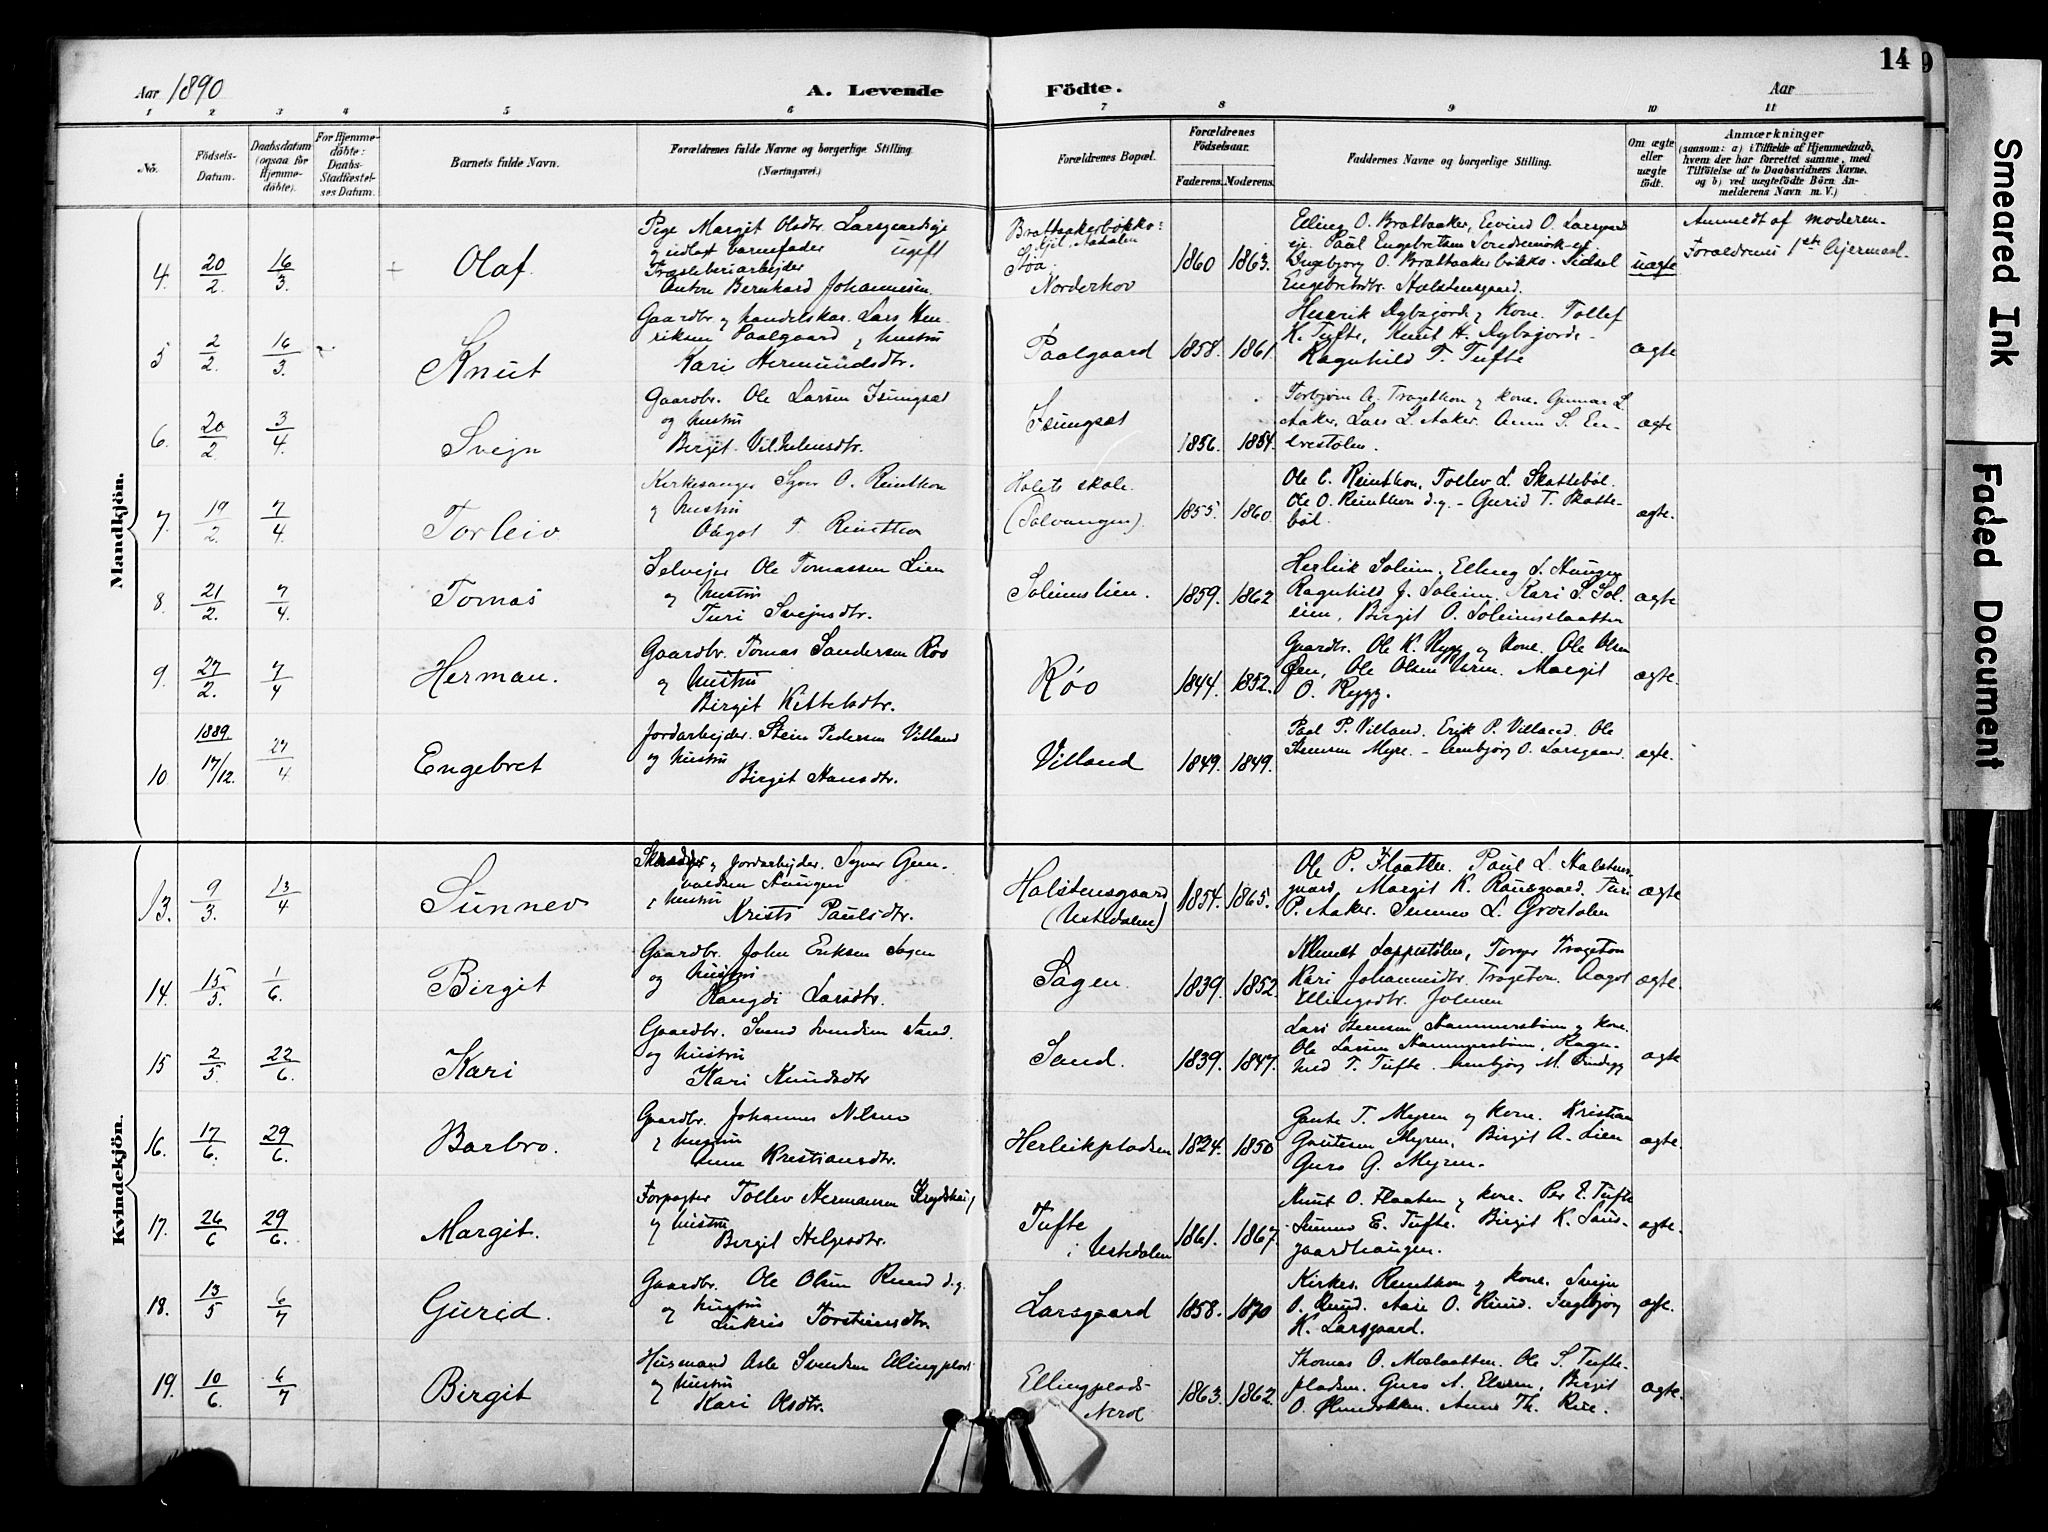 14
Aar 1890
A. Levende Födte.
Aar
1 2 3 4 5 6 7 8 9 10 11
No.
Födsels-Datum.
Daabsdatum (ogsaa for Hjemme-döbte).
For Hjemme-döbte: Daabs-Stadfæstel-ses Datum.
Barnets fulde Navn.
Forældrenes fulde Navne og borgerlige Stilling. (Næringsvei.)
Forældrenes Bopæl.
Forældrenes Födselsaar.
Faderens. Moderens.
Faddernes Navne og borgerlige Stilling.
Om ægte eller uægte födt.
Anmærkninger
(saasom: a) i Tilfælde af Hjemmedaab,
hvem der har forrettet samme, med
Tilföielse af to Daabsvidners Navne,
og b) ved uægtefödte Börn An-
melderens Navn m. V.)
Mandkjön.
4. 20/2 16/3 Olaf
Pige Margit Olsdtr. Larsgaardeje
ugift
Anton Bernhard Johannesen.
Norderhov
1860 1863.
Elling O. Brattaaker, Eivind O. Larsgaard
Ingebjorg O. Brattaakerbökko. Sidsel
Engebretsdtr. Halstensgaard.
uægte
Anmeldt af moderen.
Forældrenes 1ste Lejermaal.
5 2/2 16/3 Knut
Gaardbr. og handelskar. Lars Hen-
riksen Paalgaard og hustru
Kari Hermundsdtr.
Paalgaard
1858. 1861.
Henrik Dybsjorde og Kone. Tollef
K. Tufte, Knut H. Dybsjorde.
Ragnhild T. Tufte
ægte
6. 20/2 3/4 Svejn
Gaardbr. Ole Larsen Isungset
og hustru
Birgit Vilhelmsdtr.
Isungset
1856. 1854.
Torbjörn A. Tragethon og Kone. Gunnar L.
Aaker, Lars L. Aaker. Anne S. En-
erestølen.
ægte
7. 19/2 7/4 Torleiv
Kirkesanger Syver O. Reinthon
og hustru
Aagot T. Reinthon
Holets skole.
(Solvangen).
1855. 1860
Ole C. Reinthon, Tollev L. Skattebøl.
Ole O. Reinthon d.y. - Gurid T. Skatte-
bøl.
ægte.
8. 21/2. 7/4. Tomas
Selvejer Ole Tomassen Lien
og hustru
Turi Svejnsdtr.
Soleimslien.
1859. 1862
Herleik Soleim, Elling S. Haugen
Ragnhild J. Soleim. Kari S. Sol-
eim, Birgit O. Soleimsslaatten
ægte
9. 27/2. 7/4 Herman.
Gaardbr. Tomas Sandersen Røo
og hustru
Birgit Kittelsdtr.
Røo
1844. 1852.
Gaardbr. Ole K. Rygg og Kone. Ole Olsen
Øen, Ole Olsen Uren. Margit
O. Rygg.
ægte.
10 1889. 17/12. 27/4 Engebret
Jordarbejder. Stein Pedersen Villand
og hustru
Birgit Hansdtr.
Villand
1849. 1849.
Paal P. Villand. Erik P. Villand. Ole
Stensen Myre. - Ambjørg O. Larsgaard.
ægte.
Kvindekjön.
13. 9/3. 13/4 Sunnev
og Jordarbejder. Syver Gun-
valdsen Haugen
og hustru
Kristi Paulsdtr.
Halstensgaard
(Ustedalen)
1854. 1865.
Ole P. Flaatte. Paul L. Halstens-
gaard, Margit K. Rausgaard. Turi
P. Aaker. Sunnev L. Grøstølen
ægte
14. 15/5. 1/6. Birgit
Gaardbr. John Eriksen Sagen
og hustru
Rangdi Larsdtr.
Sagen.
1839. 1852.
Kari Johannesdtr. Trageton. Aagot
Ellingsdtr.
ægte.
15 2/5 22/6. Kari
Gaardbr. Svend Svendsen Sand.
og hustru
Kari Knudsdtr
Sand.
1839. 1847.
Lars Hammersbøen og Kone.
Ole Larsen Hammersbøen, Ragn-
hild T. Tufte. Ambjørg M.
ægte
16. 17/6. 29/6. Barbro.
Gaardbr. Johannes Nilsen
og hustru
Anne Kristiansdtr.
Herleikpladsen
1824. 1850
Gaute T. Myren og Kone. Kristian
Gautesen Myren, Birgit A. Lien
Guro G. Myren.
ægte.
17. 26/6 29/6. Margit.
Forpagter Tollev Hermansen
og hustru
Birgit Helgesdtr.
Tufte
i Ustedalen
1861. 1867.
Knut O. Flaaten og Kone. Per E. Tufte
Sunnev E. Tufte. Birgit K. Laus-
gaardhaugen.
ægte.
18. 13/5 6/7 Gurid.
Gaardbr. Ole Olsen Ruud d.y.
og hustru
Lukris Torstensdtr.
Larsgaard
1858. 1870
Kirkes. Reinthon og Kone. Svejn
O. Ruud. Aase O. Ruud. Ingebjørg
K. Larsgaard.
ægte.
19. 10/6. 6/7 Birgit
Husmand Asle Svendsen Ellingplads
og hustru
Kari Olsdtr.
Ellingplads-
Nerol
1863. 1862.
Thomas O. Moslaatten. Ole S. Tufte-
pladsen. Guro A. Birgit
O. Anne Th.
ægte.
Smeared Ink
Faded Document